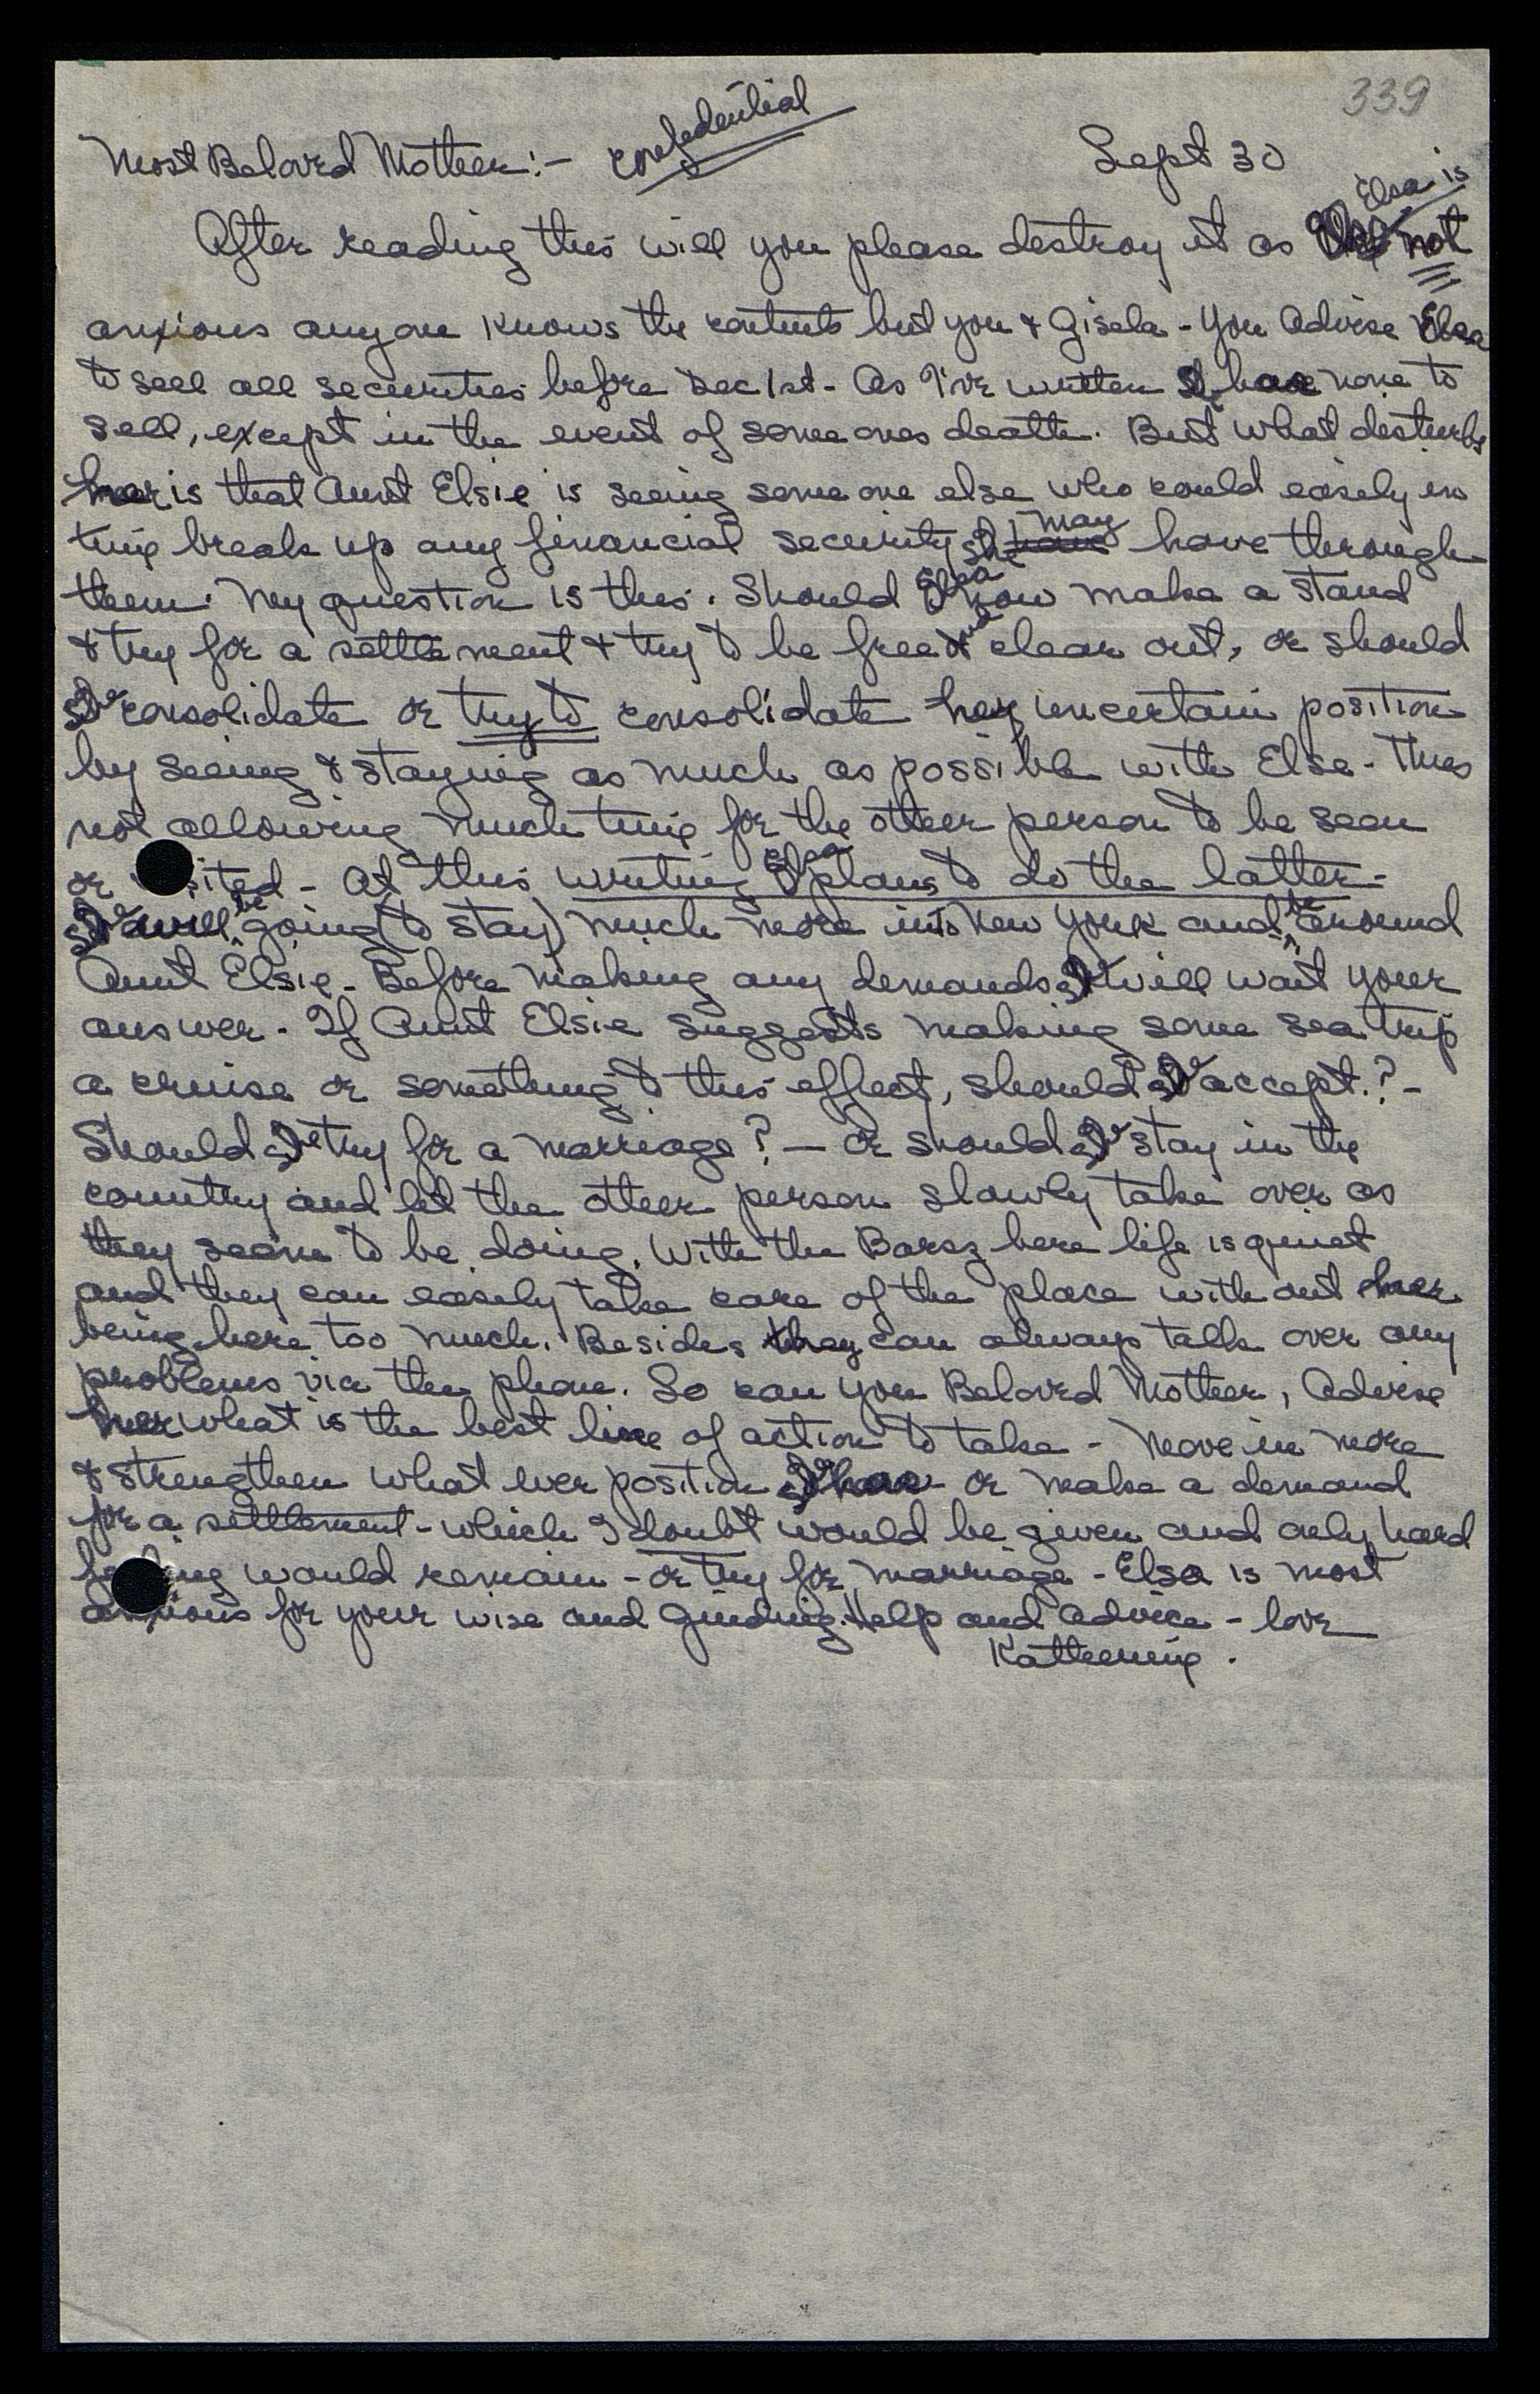 339
Most Beloved Mother:- confidential Sept 30
After reading this will you please destroy it as Elsa is not
anxious anyone knows the contents but you & Gisela - You Advise Elsa
to sell all securities before Dec 1st - As I've written She has none to
sell, except in the event of someones death. But what disturbs
her is that Aunt Elsie is seeing some one else who could easily in
time break up any financial security she may have through
them. My question is this. Should Elsa now make a stand
& try for a settlement & try to be free and clear out, or should
She consolidate or try to consolidate her uncertain position
by seeing & staying as much as possible with Else - thus
not allowing much time for the other person to be seen
or visited - At this writing Elsa plans to do the latter -
She will be going (to stay) much more into New York and be around
Aunt Elsie - Before making any demands she will wait your
answer - If Aunt Elsie suggests making some sea trip
a cruise or something to this effect, should she accept.? -
Should she try for a marriage? - Or should she stay in the
country and let the other person slowly take over as
they seem to be doing. With the Barsz here life is quiet
and they can easely take care of the place without her
being here too much. Besides they can always talk over any
problems via the phone. So can you Beloved Mother, Advise
her what is the best line of action to take - Move in more
& strengthen what ever position she has or make a demand
for a settlement - which I doubt would be given and only hard
feeling would remain - or try for marriage - Elsa is most
anxious for your wise and guiding. Help and advice - love
Katherine.